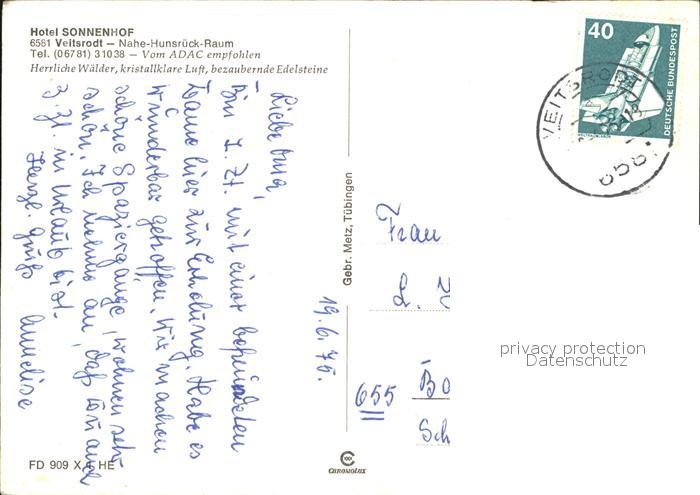 Hotel SONNENHOF
6581 Veitsrodt — Nahe-Hunsrück-Raum
Tel. (06781) 31038 — Vom ADAC empfohlen
Herrliche Wälder, kristallklare Luft, bezaubernde Edelsteine
19.6.75.
Liebe
Bin z. Zt. mit einer befreundeten
Dame hier zur Erholung. Habe es
wunderbar getroffen. Wir machen
schöne Spaziergänge, wohnen sehr
schön. Ich nehme an, daß Du auch
z. Zt. in Urlaub bist.
Herzl. Grüße Annelise
FD 909 X 4 HE
Gebr. Metz, Tübingen
CHROMOLUX
40
DEUTSCHE BUNDESPOST
VEITSRODT
658
Frau
L.
655 Bo
Sch
privacy protection
Datenschutz